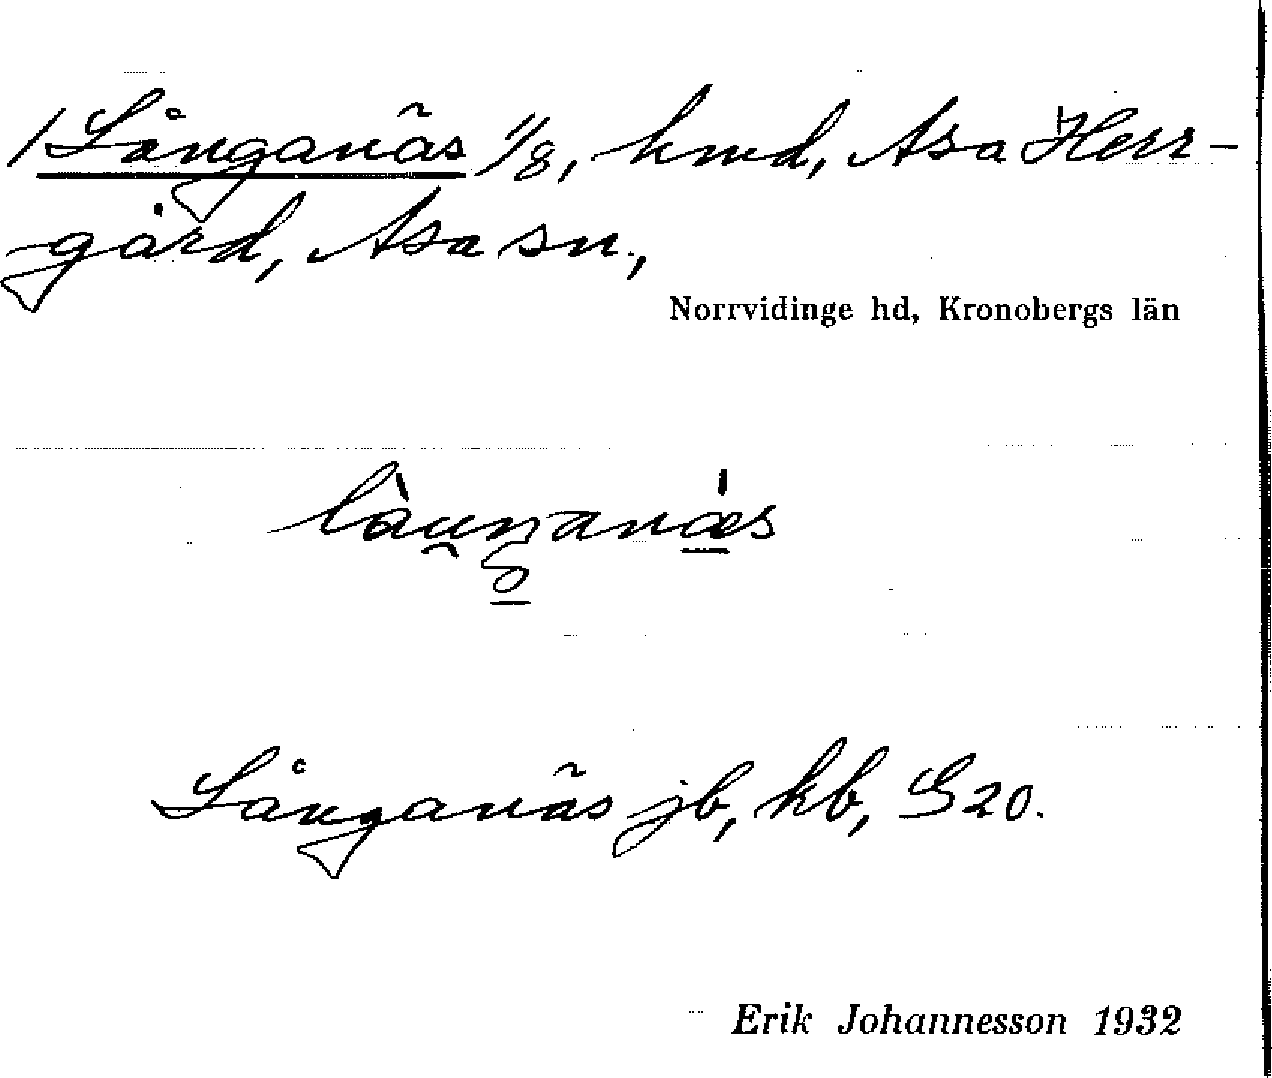 1 Långanäs 1/8, hmd, Asa Herr-
gård, Asa sn.,
Norrvidinge hd, Kronobergs län
Långanäs jb, kb, G20.
Erik Johannesson 1932